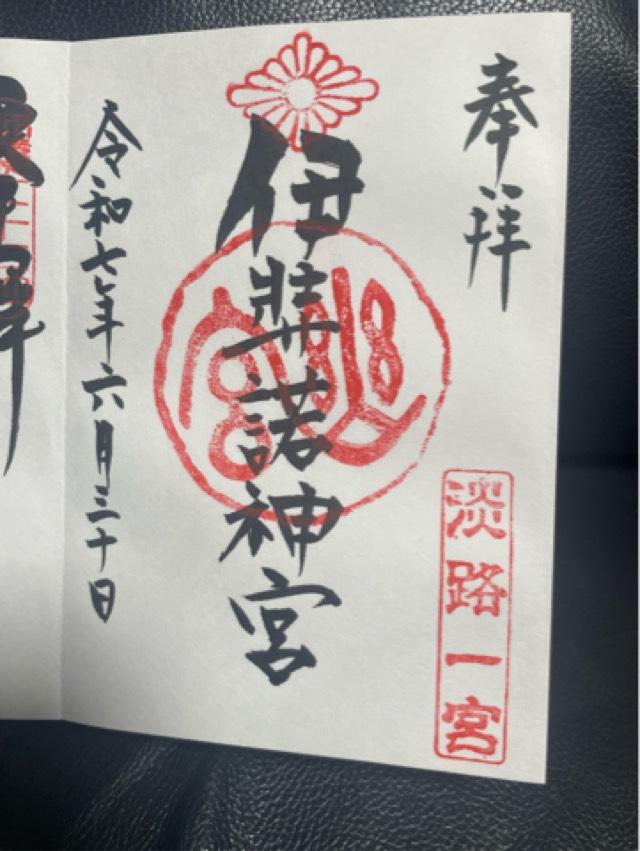 奉拝
淡路一宮
伊弉諾神宮
令和七年六月三十日